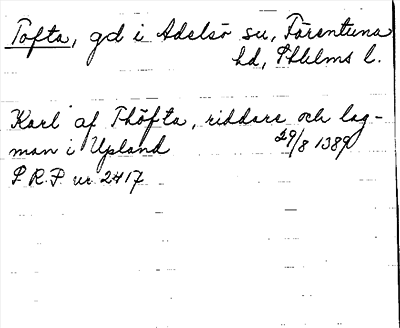 Tofta, gd i Adelsö sn, Färentuna
hd, Sthlms l.
Karl af Thöfta, riddare och lag-
man i Upland 29/8 1389
S R P nr 2417